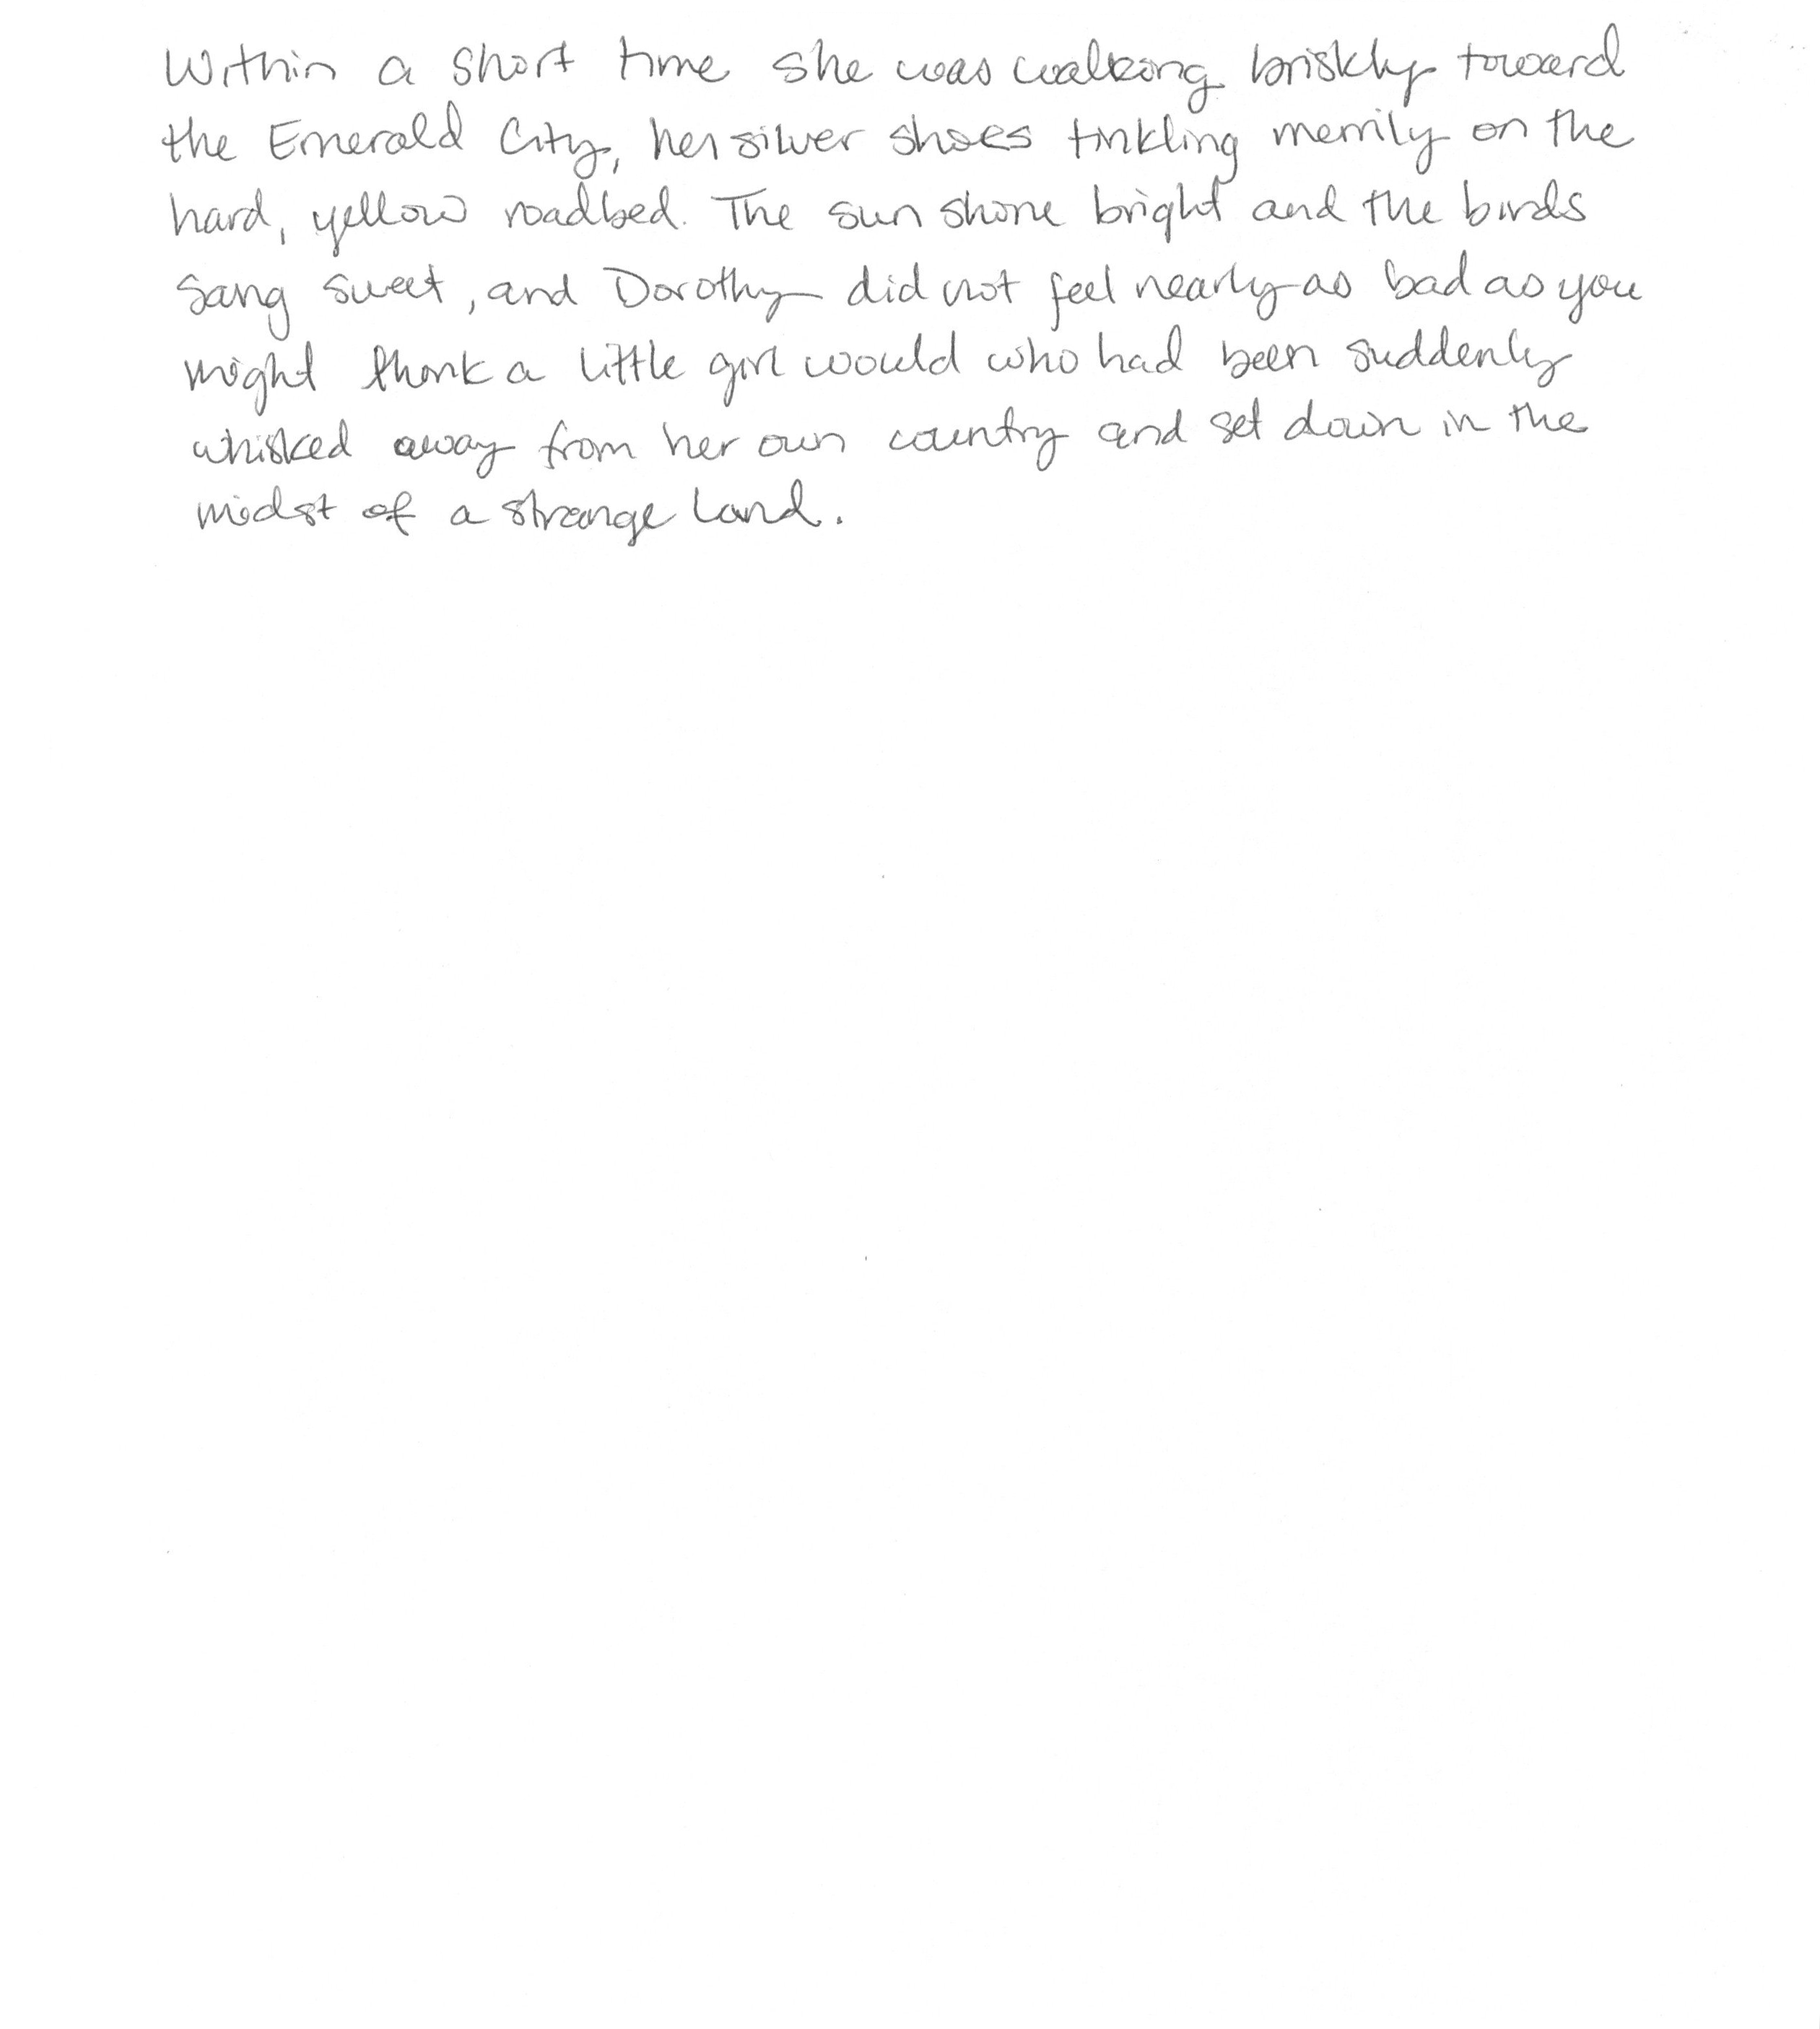 Within a short time she was walking briskly toward
the Emerald City, her silver shoes tinkling merrily on the
hard, yellow roadbed. The sun shone bright and the birds
sang sweet, and Dorothy did not feel nearly as bad as you
might think a little girl would who had been suddenly
whisked away from her own country and set down in the
midst of a strange land.